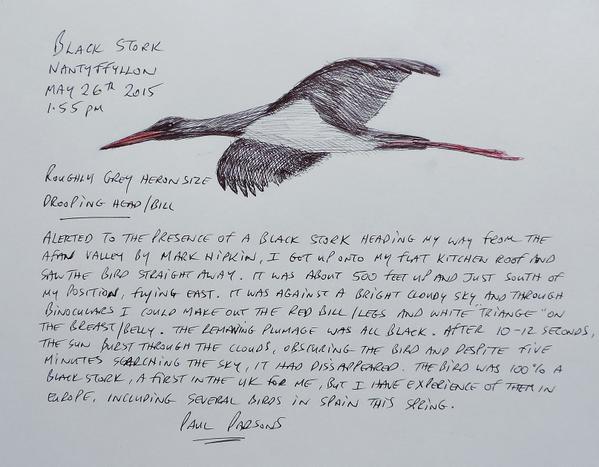 BLACK STORK
NANTYFFYLLON
MAY 26TH 2015
1.55 PM
ROUGHLY GREY HERON SIZE
DROOPING HEAD/BILL
ALERTED TO THE PRESENCE OF A BLACK STORK HEADING MY WAY FROM THE
AFAN VALLEY BY MARK HIPKIN, I GOT UP ONTO MY FLAT KITCHEN ROOF AND
SAW THE BIRD STRAIGHT AWAY. IT WAS ABOUT 500 FEET UP AND JUST SOUTH OF
MY POSITION, FLYING EAST. IT WAS AGAINST A BRIGHT CLOUDY SKY AND THROUGH
BINOCULARS I COULD MAKE OUT THE RED BILL/LEGS AND WHITE "TRIANGE" ON
THE BREAST/BELLY. THE REMAINING PLUMAGE WAS ALL BLACK. AFTER 10-12 SECONDS,
THE SUN BURST THROUGH THE CLOUDS, OBSCURING THE BIRD AND DESPITE FIVE
MINUTES SEARCHING THE SKY, IT HAD DISSAPEARED. THE BIRD WAS 100% A
BLACK STORK, A FIRST IN THE UK FOR ME, BUT I HAVE EXPERIENCE OF THEM IN
EUROPE, INCLUDING SEVERAL BIRDS IN SPAIN THIS SPRING.
PAUL PARSONS